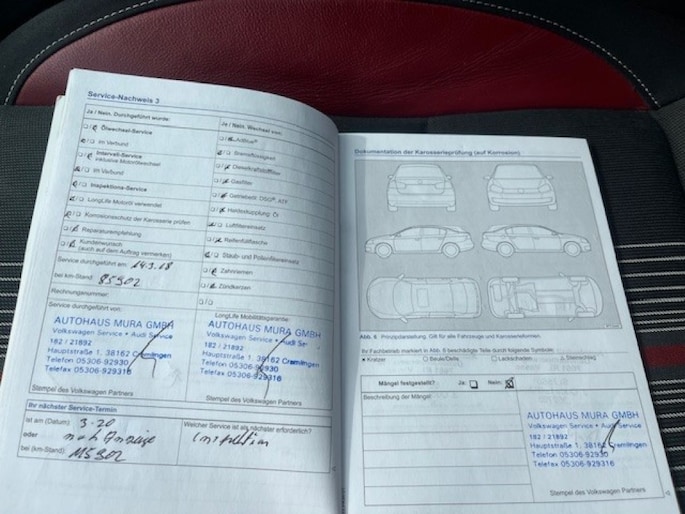 Service-Nachweis 3
Ja / Nein. Durchgeführt wurde:
Ölwechsel-Service
im Verbund
Intervall-Service
inklusive Motorölwechsel
im Verbund
Inspektions-Service
LongLife Motoröl verwendet
Korrosionsschutz der Karosserie prüfen
Reparaturempfehlung
Kundenwunsch
(auch auf dem Auftrag vermerken)
Service durchgeführt am: 14.3.18
bei km-Stand: 85302
Rechnungsnummer:
Service durchgeführt von:
AUTOHAUS MURA GMBH
Volkswagen Service • Audi Service
182 / 21892
Hauptstraße 1, 38162 Cremlingen
Telefon 05306-92930
Telefax 05306-929316
Stempel des Volkswagen Partners
Ja / Nein. Wechsel von:
AdBlue®
Bremsflüssigkeit
Dieselkraftstofffilter
Gasfilter
Getriebeöl: DSG®, ATF
Haldexkupplung: Öl
Luftfiltereinsatz
Reifenfüllflasche
Staub- und Pollenfiltereinsatz
Zahnriemen
Zündkerzen
LongLife Mobilitätsgarantie:
AUTOHAUS MURA GMBH
Volkswagen Service • Audi Se
182 / 21892
Hauptstraße 1, 38162 Cremlingen
Telefon 05306-92930
Telefax 05306-929316
Stempel des Volkswagen Partners
Ihr nächster Service-Termin
ist am (Datum): 3-20
oder nach Anzeige
bei (km-Stand): 115302
Welcher Service ist als nächster erforderlich?
Inspektion
Dokumentation der Karosserieprüfung (auf Korrosion)
Abb. 6 Prinzipdarstellung. Gilt für alle Fahrzeuge und Karosserieformen.
Ihr Fachbetrieb markiert in Abb. 6 beschädigte Teile durch folgende Symbole:
× Kratzer ○ Beule/Delle □ Lackschaden △ Steinschlag
Mängel festgestellt? Ja: Nein:
Beschreibung der Mängel:
AUTOHAUS MURA GMBH
Volkswagen Service • Audi Service
182 / 21892
Hauptstraße 1, 38162 Cremlingen
Telefon 05306-92930
Telefax 05306-929316
Stempel des Volkswagen Partners